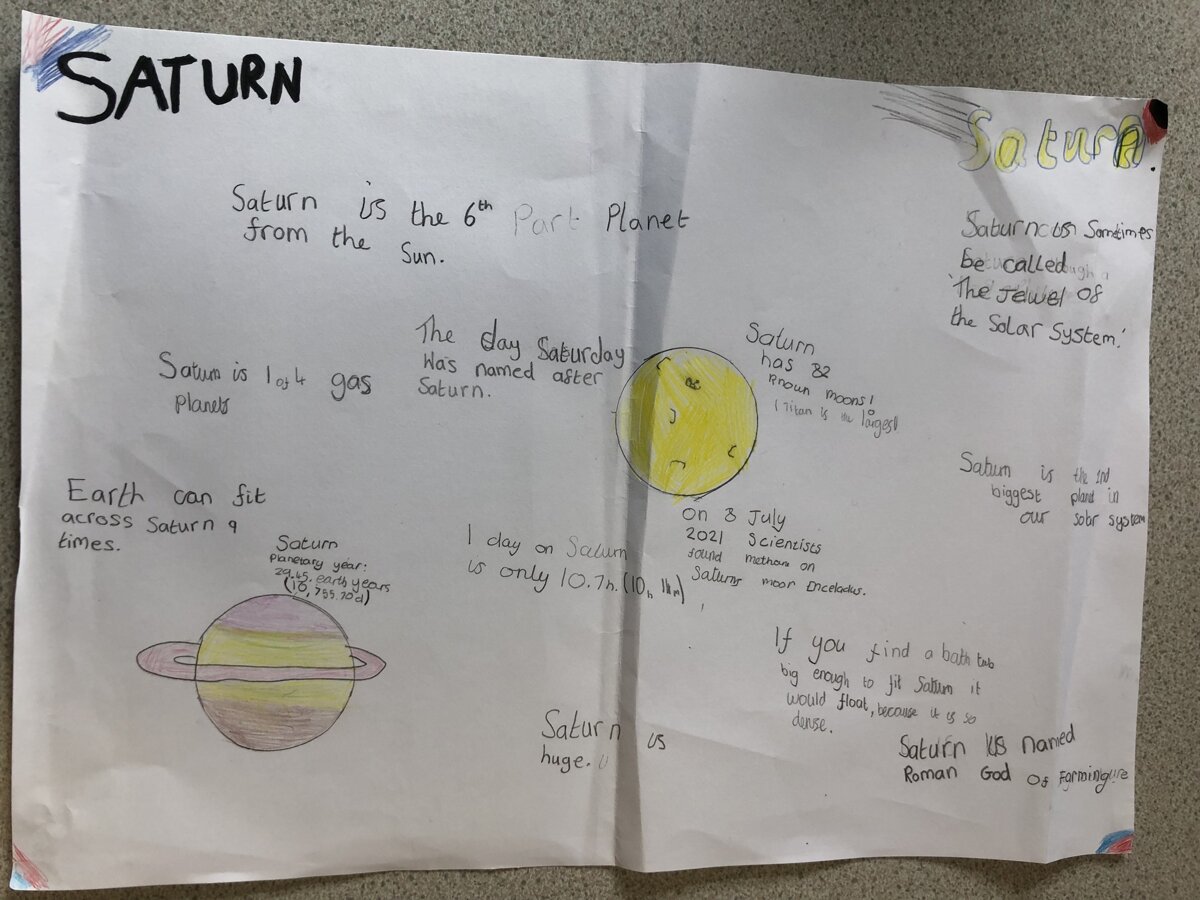 SATURN
Saturn
Saturn is the 6th Part Planet
from the Sun.
Saturn is Sometimes
be called
'The Jewel Of
the Solar System.'
The day Saturday
Was named after
Saturn.
Saturn is 1 of 4 gas
planets
Saturn
has 82
known moons!
(Titan is the largest)
Saturn is the 2nd
biggest planet in
our solar system
Earth can fit
across Saturn 9
times.
Saturn
Planetary year:
29.45. earth years
(10,755.70d)
1 day on Saturn
is only 10.7h.(10h
On 8 July
2021 Scientists
found methane on
Saturns moon Enceladus.
If you find a bath tub
big enough to fit Saturn it
would float, because it is so
dense.
Saturn is
huge.
Saturn is named
Roman God Of